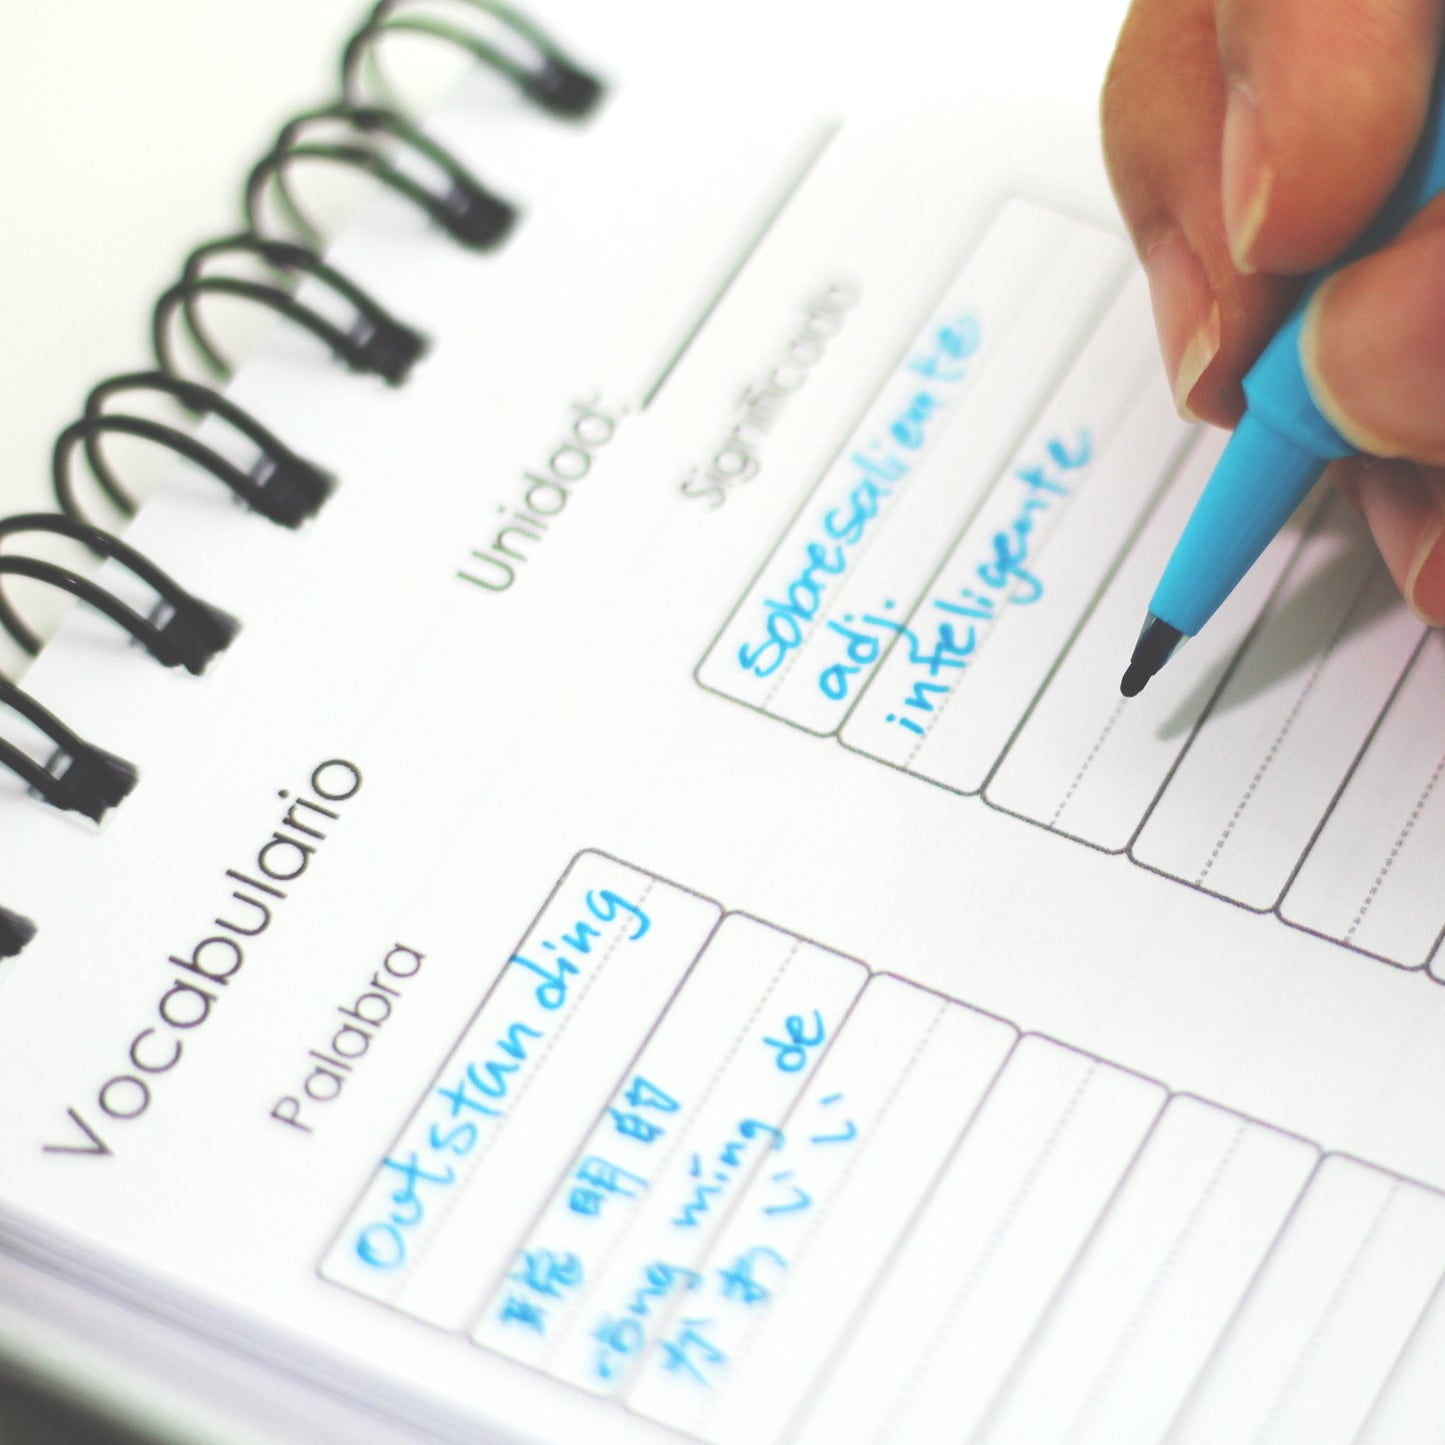 Vocabulario Unidad:
Palabra Significado
Outstanding sobresaliente
adj.
聪明的 inteligente
cōng míng de
かわいい